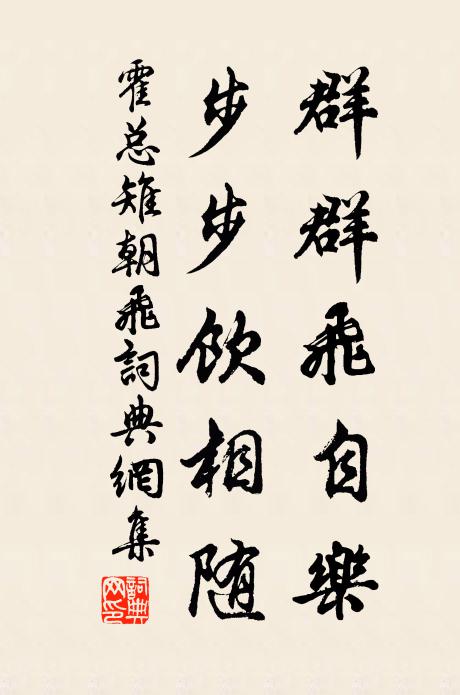 群群飛自樂
步步飲相随
霍总雉朝飛詞典網集
詞典
网印